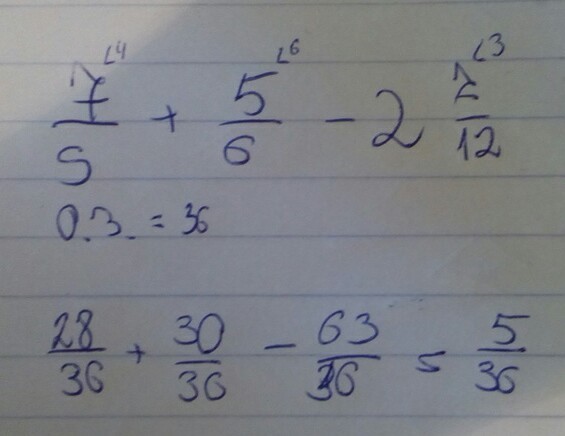 7/5 ⌊4 + 5/6 ⌊6 - 2 2/12 ⌊3
О.З. = 36
28/36 + 30/36 - 63/36 = 5/36